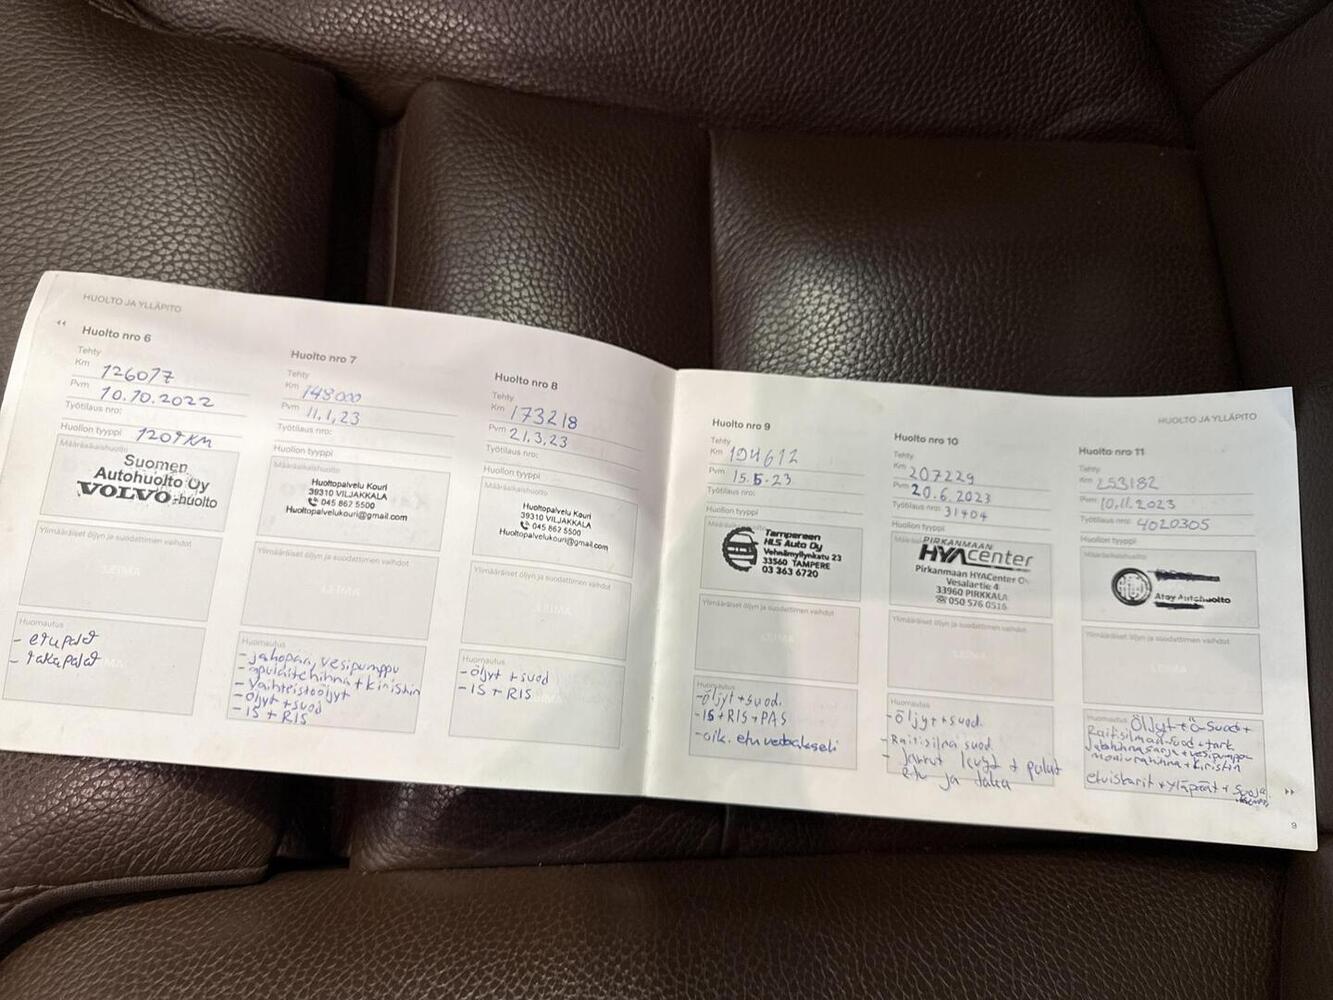 HUOLTO JA YLLÄPITO
Huolto nro 6
Tehty
Km 126077
Pvm 10.10.2022
Työtilaus nro:
Huollon tyyppi 120 KM
Määräaikaishuolto
Suomen
Autohuolto Oy
VOLVO-huolto
Ylimääräiset öljyn ja suodattimen vaihdot
LEIMA
Huomautus
- etupalat
- takapalat
Huolto nro 7
Tehty
Km 148000
Pvm 11.1.23
Työtilaus nro:
Huollon tyyppi
Määräaikaishuolto
Huoltopalvelu Kouri
39310 VILJAKKALA
045 862 5500
Huoltopalvelukouri@gmail.com
Ylimääräiset öljyn ja suodattimen vaihdot
LEIMA
Huomautus
- jakopää, vesipumppu
- apulaitehihna + kiristin
- Vaihteistoöljyt
- Öljyt + suod
- IS + RIS
Huolto nro 8
Tehty
Km 173218
Pvm 21.3.23
Työtilaus nro:
Huollon tyyppi
Määräaikaishuolto
Huoltopalvelu Kouri
39310 VILJAKKALA
045 862 5500
Huoltopalvelukouri@gmail.com
Ylimääräiset öljyn ja suodattimen vaihdot
LEIMA
Huomautus
- öljyt + suod
- IS + RIS
HUOLTO JA YLLÄPITO
Huolto nro 9
Tehty
Km 194612
Pvm 15.5.23
Työtilaus nro:
Huollon tyyppi
Tampereen
HLS Auto Oy
Vehnämyllynkatu 23
33560 TAMPERE
03 363 6720
Ylimääräiset öljyn ja suodattimen vaihdot
LEIMA
Huomautus
- öljyt + suod.
- IS + RIS + PAS
- oik. etu vetoakseli
Huolto nro 10
Tehty
Km 207229
Pvm 20.6.2023
Työtilaus nro: 31404
Huollon tyyppi
PIRKANMAAN
HYAcenter
Pirkanmaan HYACenter Oy
Vesalantie 4
33960 PIRKKALA
050 576 0516
Ylimääräiset öljyn ja suodattimen vaihdot
LEIMA
Huomautus
- Öljyt + suod.
- Raitisilma suod.
- Jarrut levyt + palat
etu ja taka
Huolto nro 11
Tehty
Km 253182
Pvm 10.11.2023
Työtilaus nro: 4020305
Huollon tyyppi
Määräaikaishuolto
Autohuolto
Ylimääräiset öljyn ja suodattimen vaihdot
LEIMA
Huomautus Öljyt + Ö-suod +
Raitisilmasuod + tark
Jakohihnasarja + vesipumppu
moniurahihna + kiristin
etuiskarit + yläpäät + suoja
9